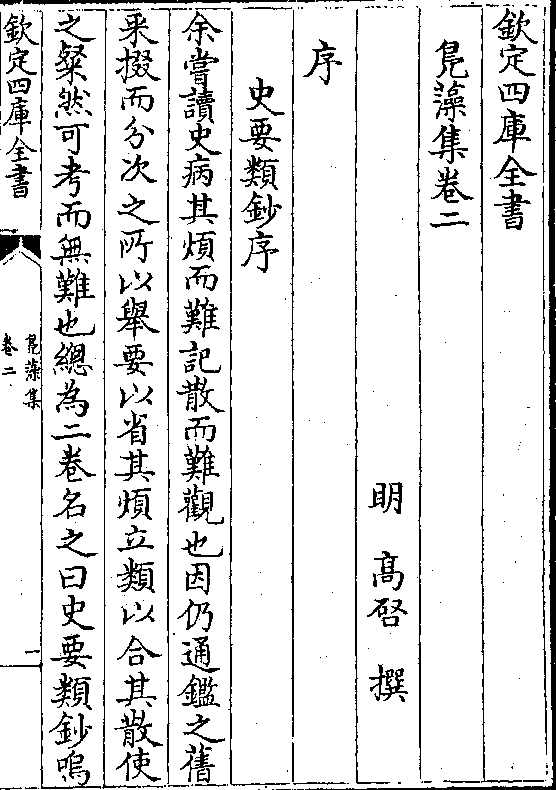 欽定四庫全書
鳬藻集卷二
明 髙啓 撰
序
史要類鈔序
余嘗讀史病其煩而難記散而難觀也因仍通鑑之舊
采掇而分次之所以舉要以省其煩立類以合其散使
之粲然可考而無難也總為二卷名之曰史要類鈔嗚
欽定四庫全書
鳬藻集
卷二
一